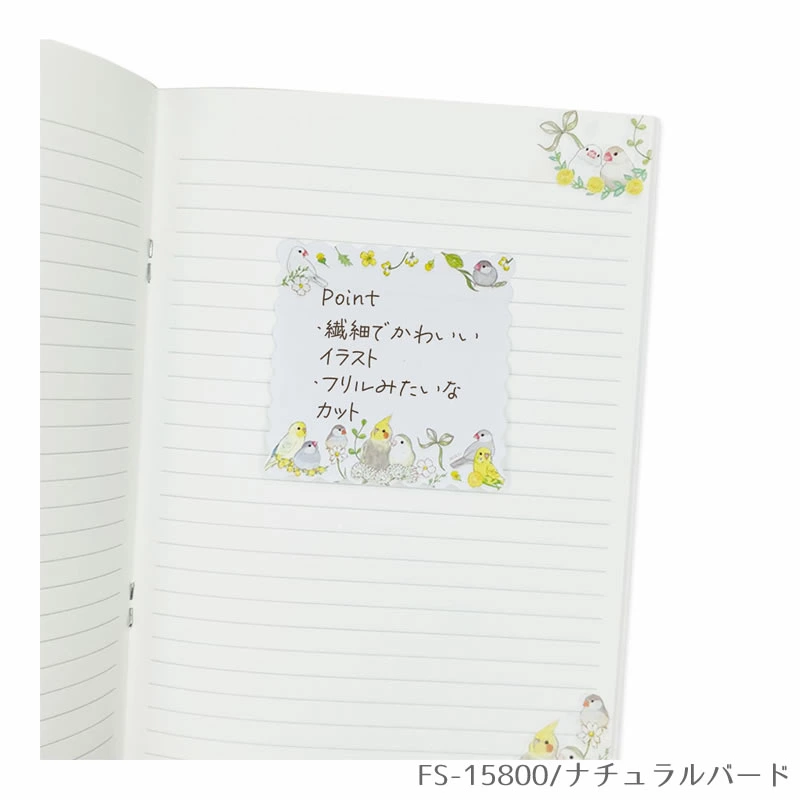 Point
・繊細でかわいい
イラスト
・フリルみたいな
カット
FS-15800/ナチュラルバード